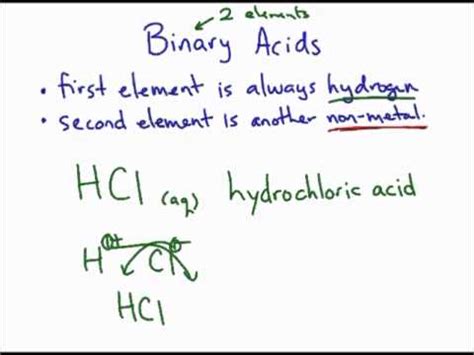 2 elements
Binary Acids
• first element is always hydrogen
• second element is another non-metal.
HCl (aq) hydrochloric acid
H Cl
HCl